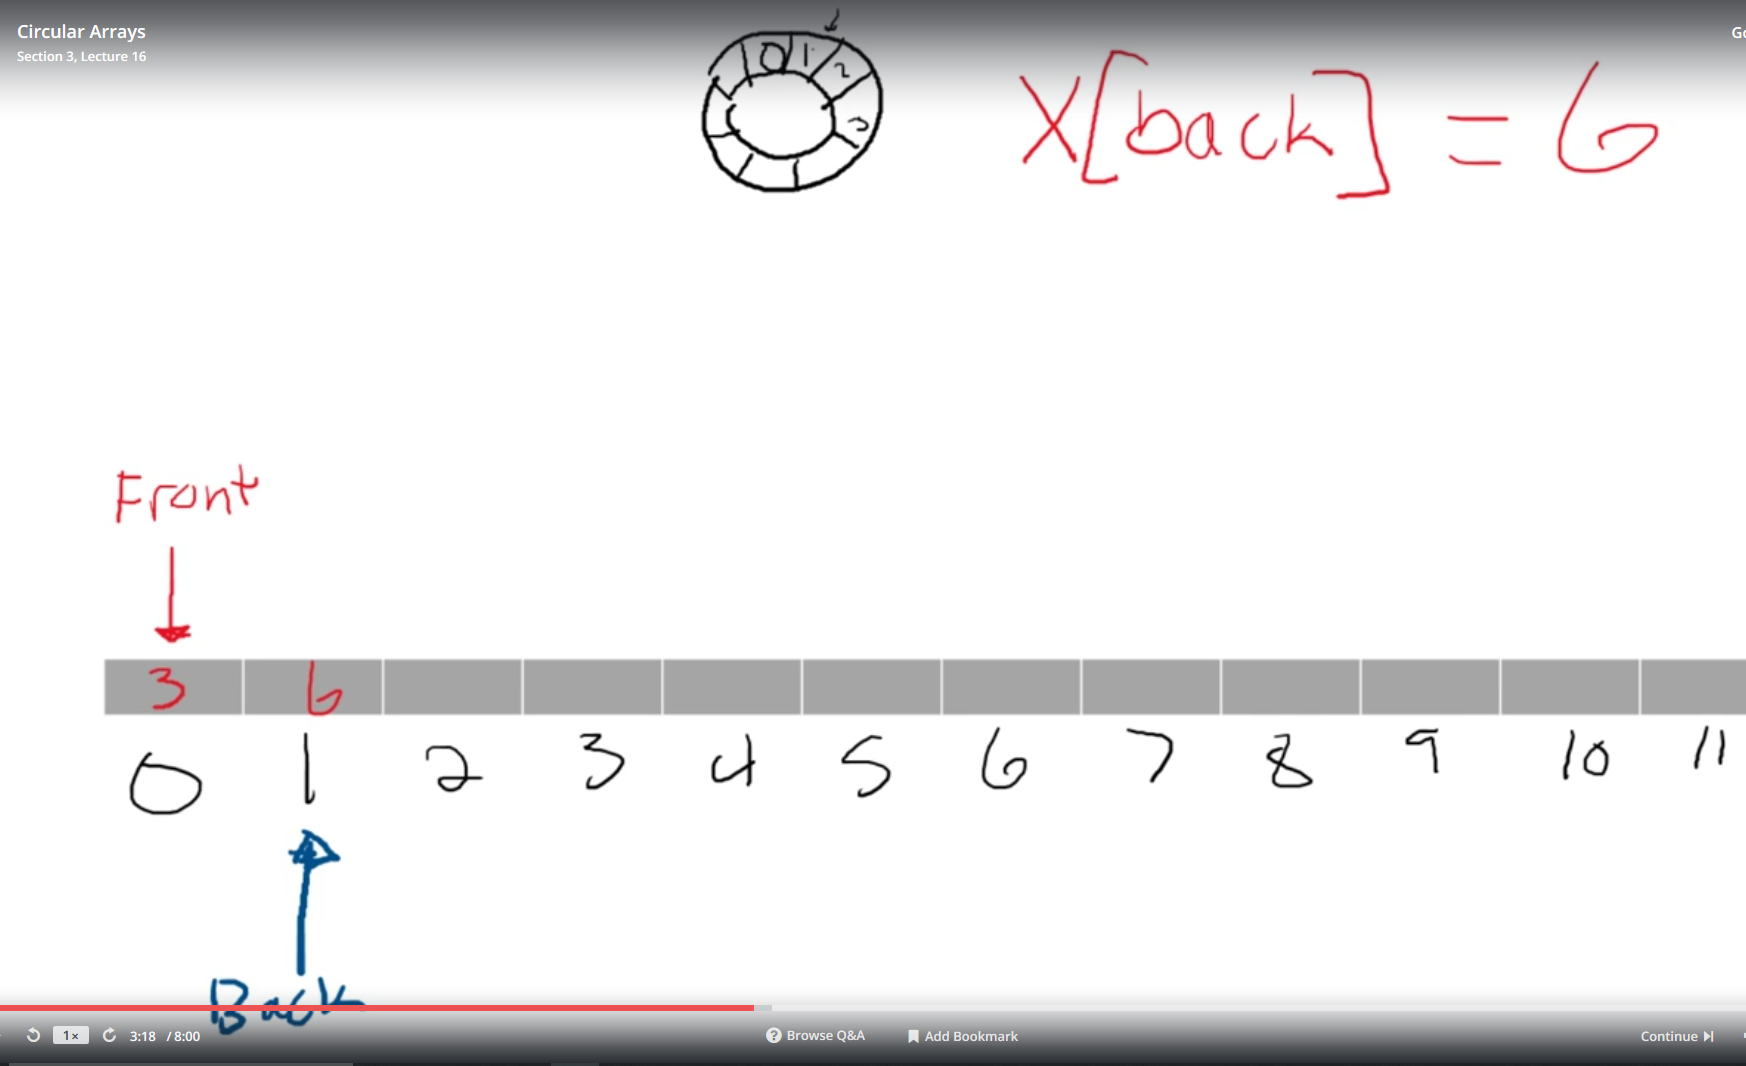 Circular Arrays
Section 3, Lecture 16
0 1 2 3
X[back] = 6
Front
3 6
0 1 2 3 4 5 6 7 8 9 10 11
Back
1x 3:18 / 8:00 ? Browse Q&A Add Bookmark Continue